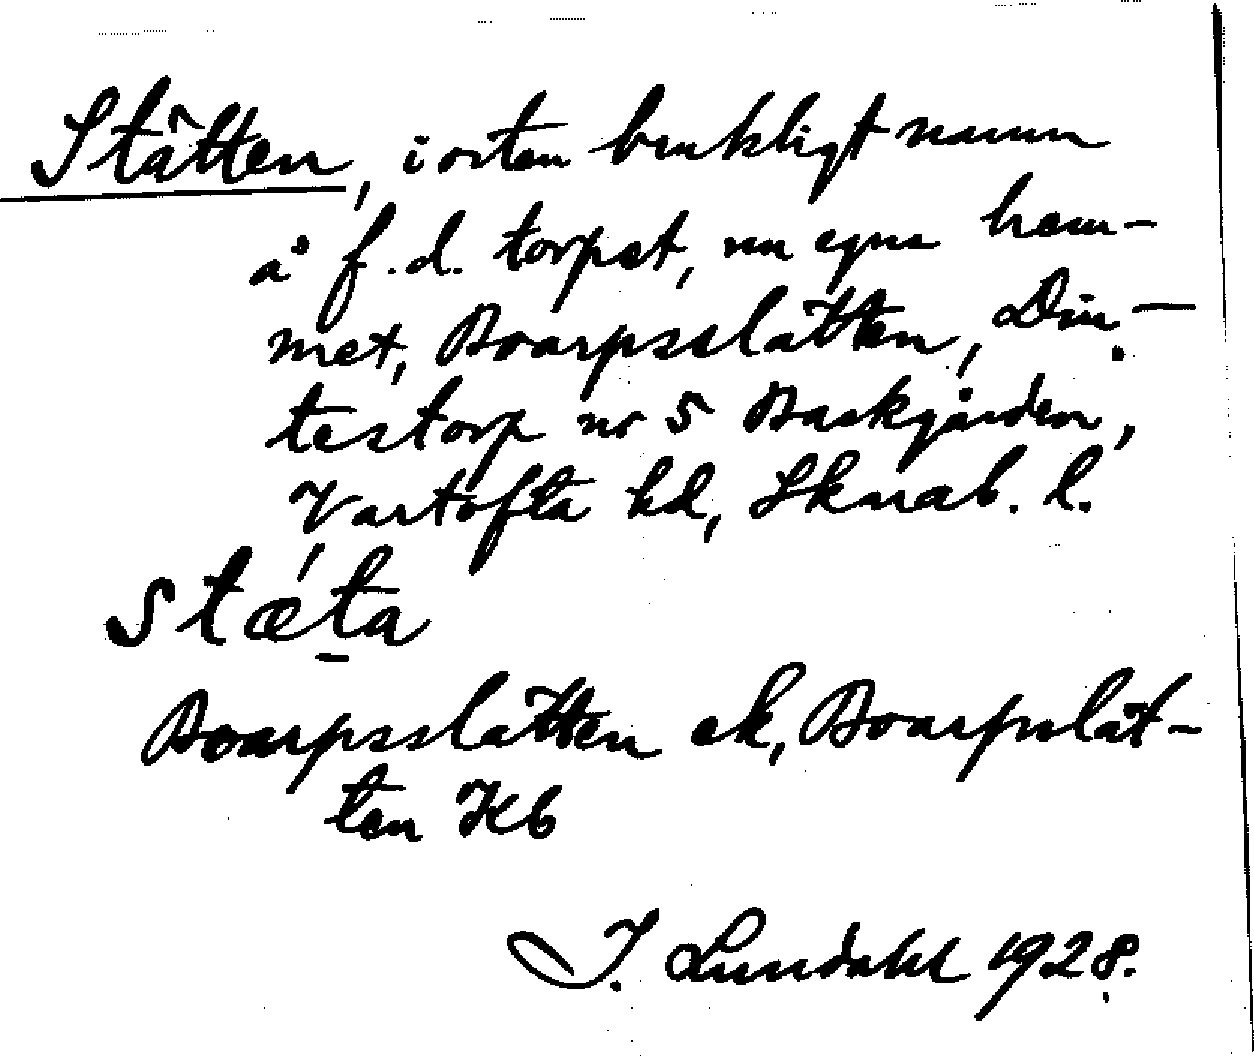 Stätten, i orten brukligt namn
å f.d. torpet, nu egna hem-
met, Boarpsslätten, Dim-
testorp nr 5 Backgården,
Vartofta hd, Skarab. l.
stǽta
Boarpsslätten ek, Boarpslät-
ten Kb
I. Lundahl 1928.